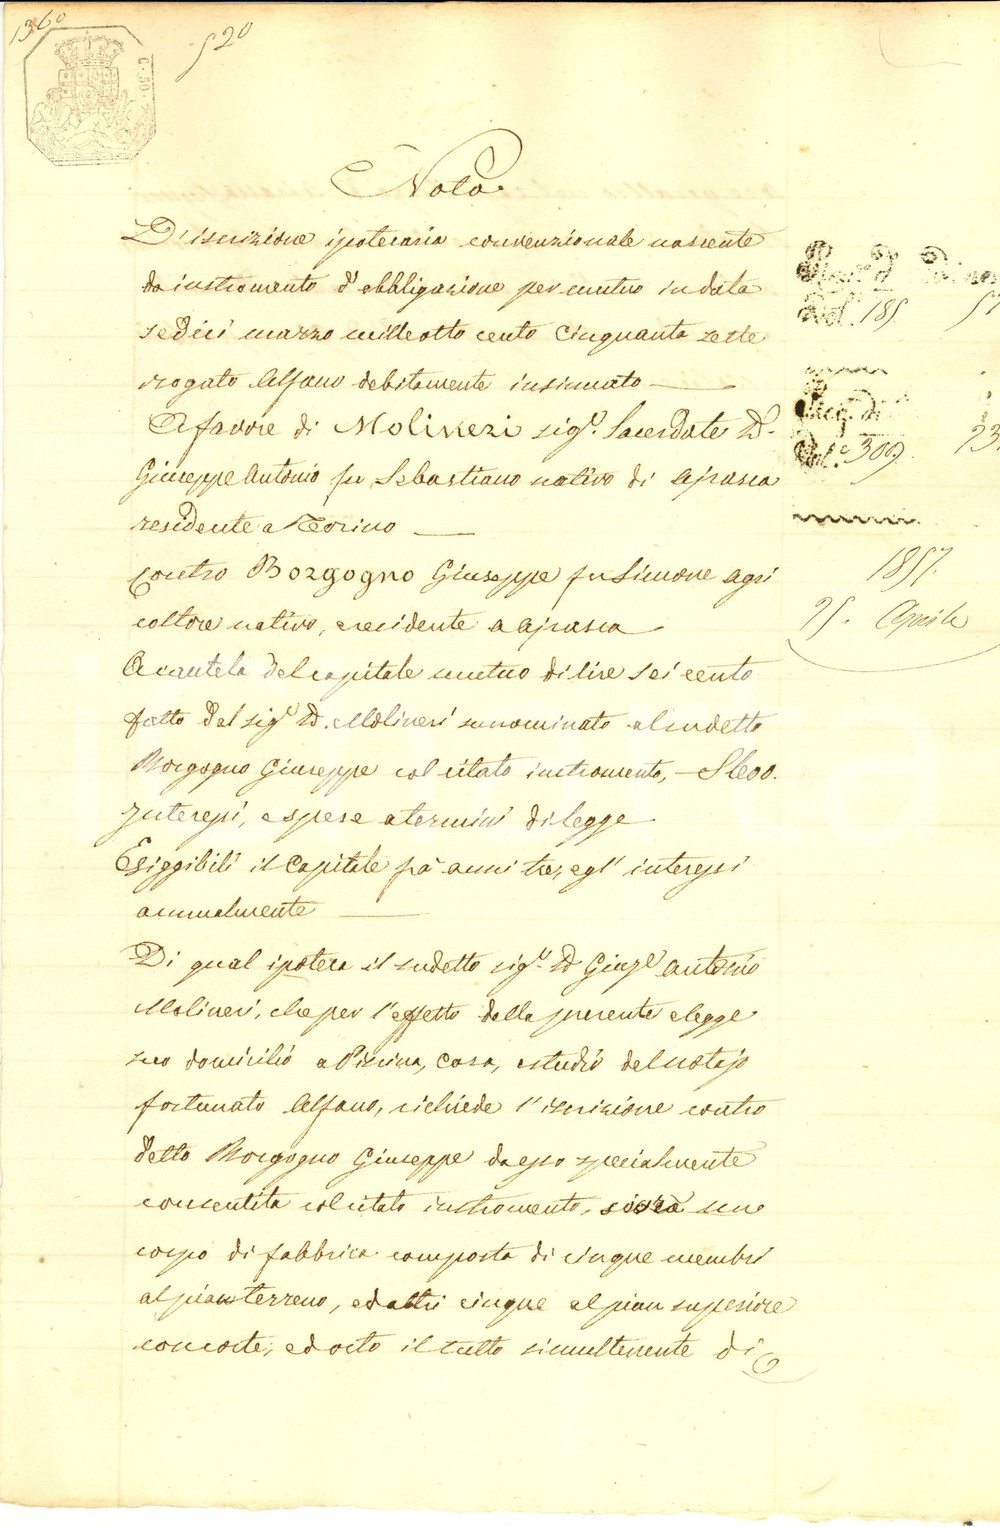 1360
520
C. 50.
Nota
D'iscrizione ipotecaria convenzionale nascente
da instromento d'obbligazione per mutuo in data
sedici marzo mille otto cento cinquanta sette
rogato Alfano debitamente insinuato
A favore di Molineri sig.r Sacerdote D.
Giuseppe Antonio fu Sebastiano nativo di Airasca
residente a Torino
Contro Borgogno Giuseppe fu Simone agri
coltore nativo, e residente a Airasca
A cautela del capitale mutuo di lire sei cento
fatto dal sig.r D. Molineri sunominato al sudetto
Borgogno Giuseppe col citato instromento, — £600.
Interessi, e spese a termini di legge
Esiggibili il capitale fra anni tre, e gl'interessi
annualmente
Di qual ipoteca il sudetto sig.r D. Giuse Antonio
Molineri, che per l'effetto della presente elegge
suo domicilio a Piscina, casa, e studio del notajo
fortunato Alfano, richiede l'iscrizione contro
detto Borgogno Giuseppe da esso specialmente
consentita col citato instromento, sovra un
corpo di fabbrica composta di cinque membri
al pian terreno, ed altri cinque al pian superiore
con corte, ed orto il tutto simultenente di
Vol. 185
Vol.e 309
1857.
25. Aprile